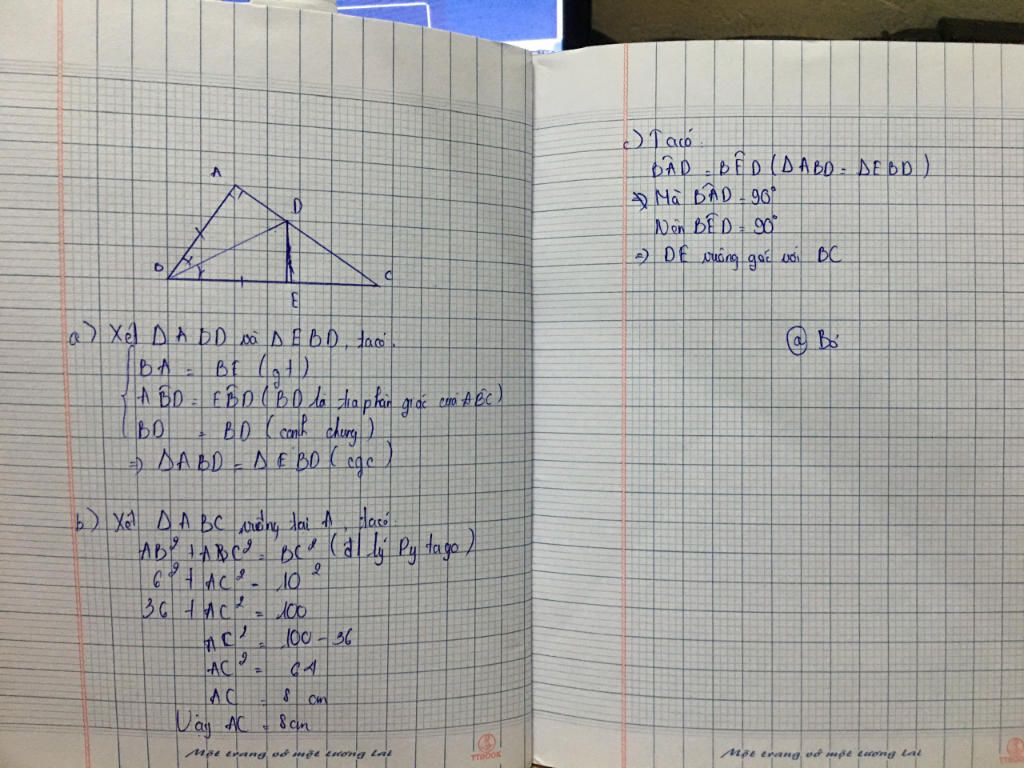 A
D
B
E
C
a) Xét ΔABD và ΔEBD, ta có.
BA = BE (gt)
AB̂D = EB̂D (BD là tia phân giác của AB̂C)
BD = BD (cạnh chung)
=> ΔABD = ΔEBD (cgc)
b) Xét ΔABC vuông tại A, ta có.
AB² + ABC² = BC² (đl lý Pytago)
6² + AC² = 10²
36 + AC² = 100
AC² = 100 - 36
AC² = 64
AC = 8 cm
Vậy AC = 8cm
Một trang vở một tương lai
TTBOOK
c) Ta có.
BÂD = BÊD (ΔABD = ΔEBD)
=> Mà BÂD = 90°
Nên BÊD = 90°
=> DE vuông góc với BC
@ Bó
Một trang vở một tương lai